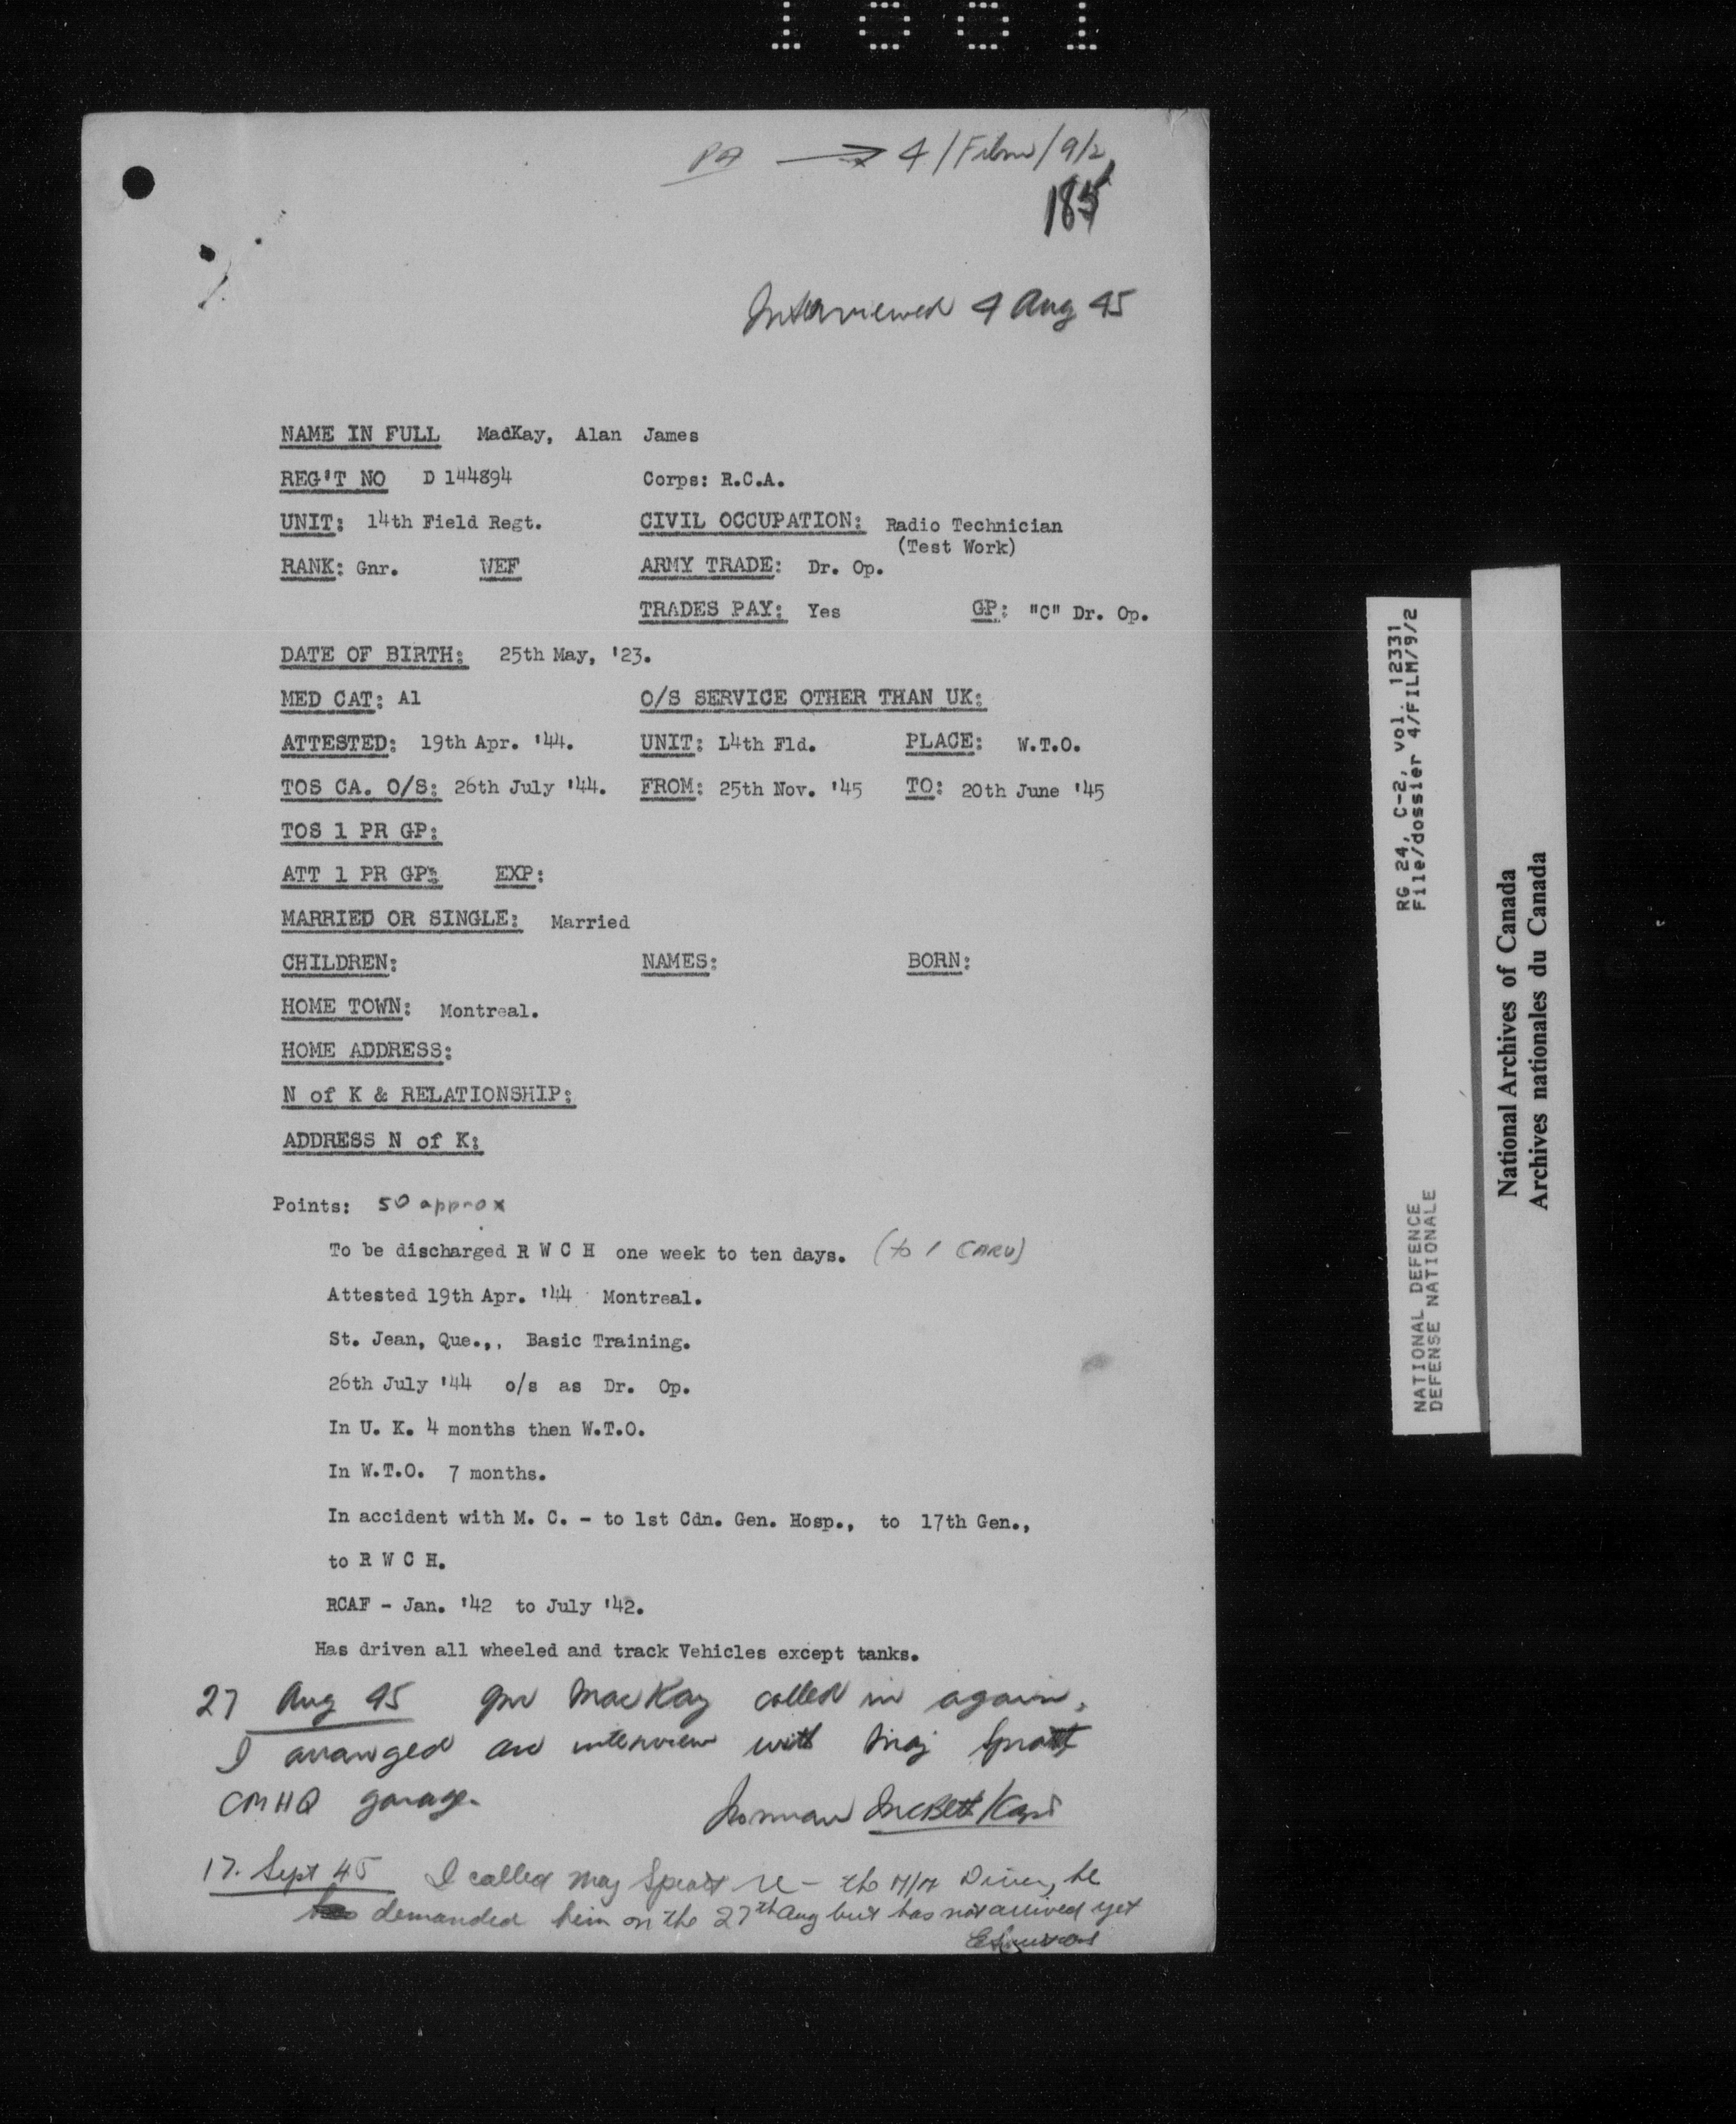 1001
PA → 4/Film/9/2
185
Interviewed 4 Aug 45
NAME IN FULL MacKay, Alan James
REG'T NO D 144894 Corps: R.C.A.
UNIT: 14th Field Regt. CIVIL OCCUPATION: Radio Technician
(Test Work)
RANK: Gnr. WEF ARMY TRADE: Dr. Op.
TRADES PAY: Yes GP: "C" Dr. Op.
DATE OF BIRTH: 25th May, '23.
MED CAT: A1 O/S SERVICE OTHER THAN UK:
ATTESTED: 19th Apr. '44. UNIT: L4th Fld. PLACE: W.T.O.
TOS CA. O/S: 26th July '44. FROM: 25th Nov. '45 TO: 20th June '45
TOS 1 PR GP:
ATT 1 PR GP: EXP:
MARRIED OR SINGLE: Married
CHILDREN: NAMES: BORN:
HOME TOWN: Montreal.
HOME ADDRESS:
N of K & RELATIONSHIP:
ADDRESS N of K:
Points: 50 approx
To be discharged R W C H one week to ten days. (to 1 CARU)
Attested 19th Apr. '44 Montreal.
St. Jean, Que.,. Basic Training.
26th July '44 o/s as Dr. Op.
In U. K. 4 months then W.T.O.
In W.T.O. 7 months.
In accident with M. C. - to 1st Cdn. Gen. Hosp., to 17th Gen.,
to R W C H.
RCAF - Jan. '42 to July '42.
Has driven all wheeled and track Vehicles except tanks.
27 Aug 45 Gnr MacKay called in again.
I arranged an interview with Maj Spratt
CMHQ garage.
Norman McBett/Capt
17. Sept 45 I called Maj Spratt re - the M/M Driver, he
demanded him on the 27th Aug but has not arrived yet
RG 24, C-2, vol. 12331
File/dossier 4/FILM/9/2
NATIONAL DEFENCE
DEFENSE NATIONALE
National Archives of Canada
Archives nationales du Canada